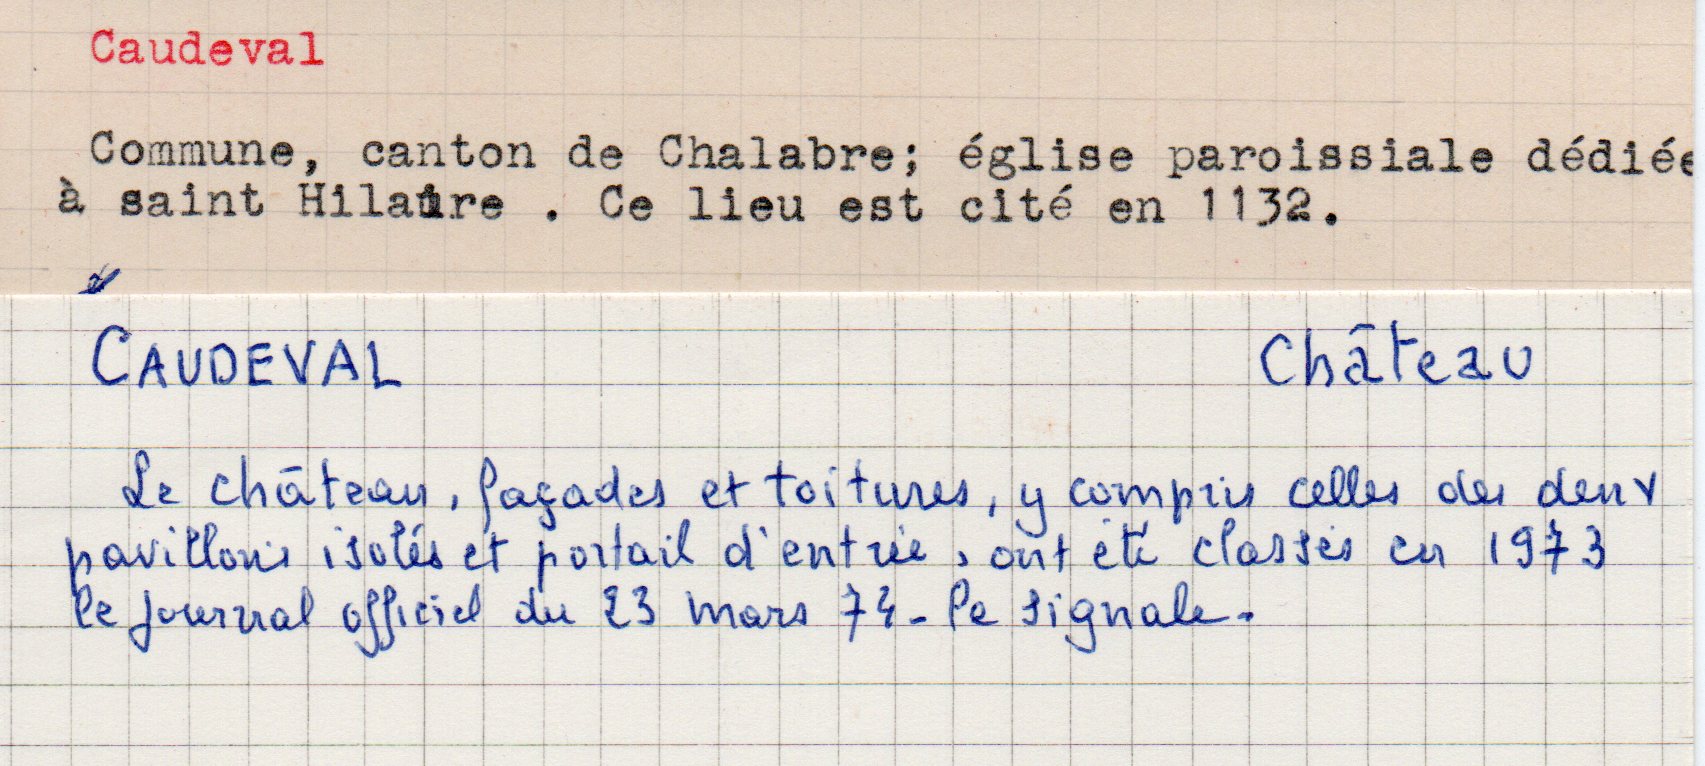 Caudeval
Commune, canton de Chalabre; église paroissiale dédiée
à saint Hilaire . Ce lieu est cité en 1132.
CAUDEVAL Château
Le château, façades et toitures, y compris celles des deux
pavillons isolés et portail d'entrée, ont été classés en 1973
le journal officiel du 23 mars 74 - le signale.